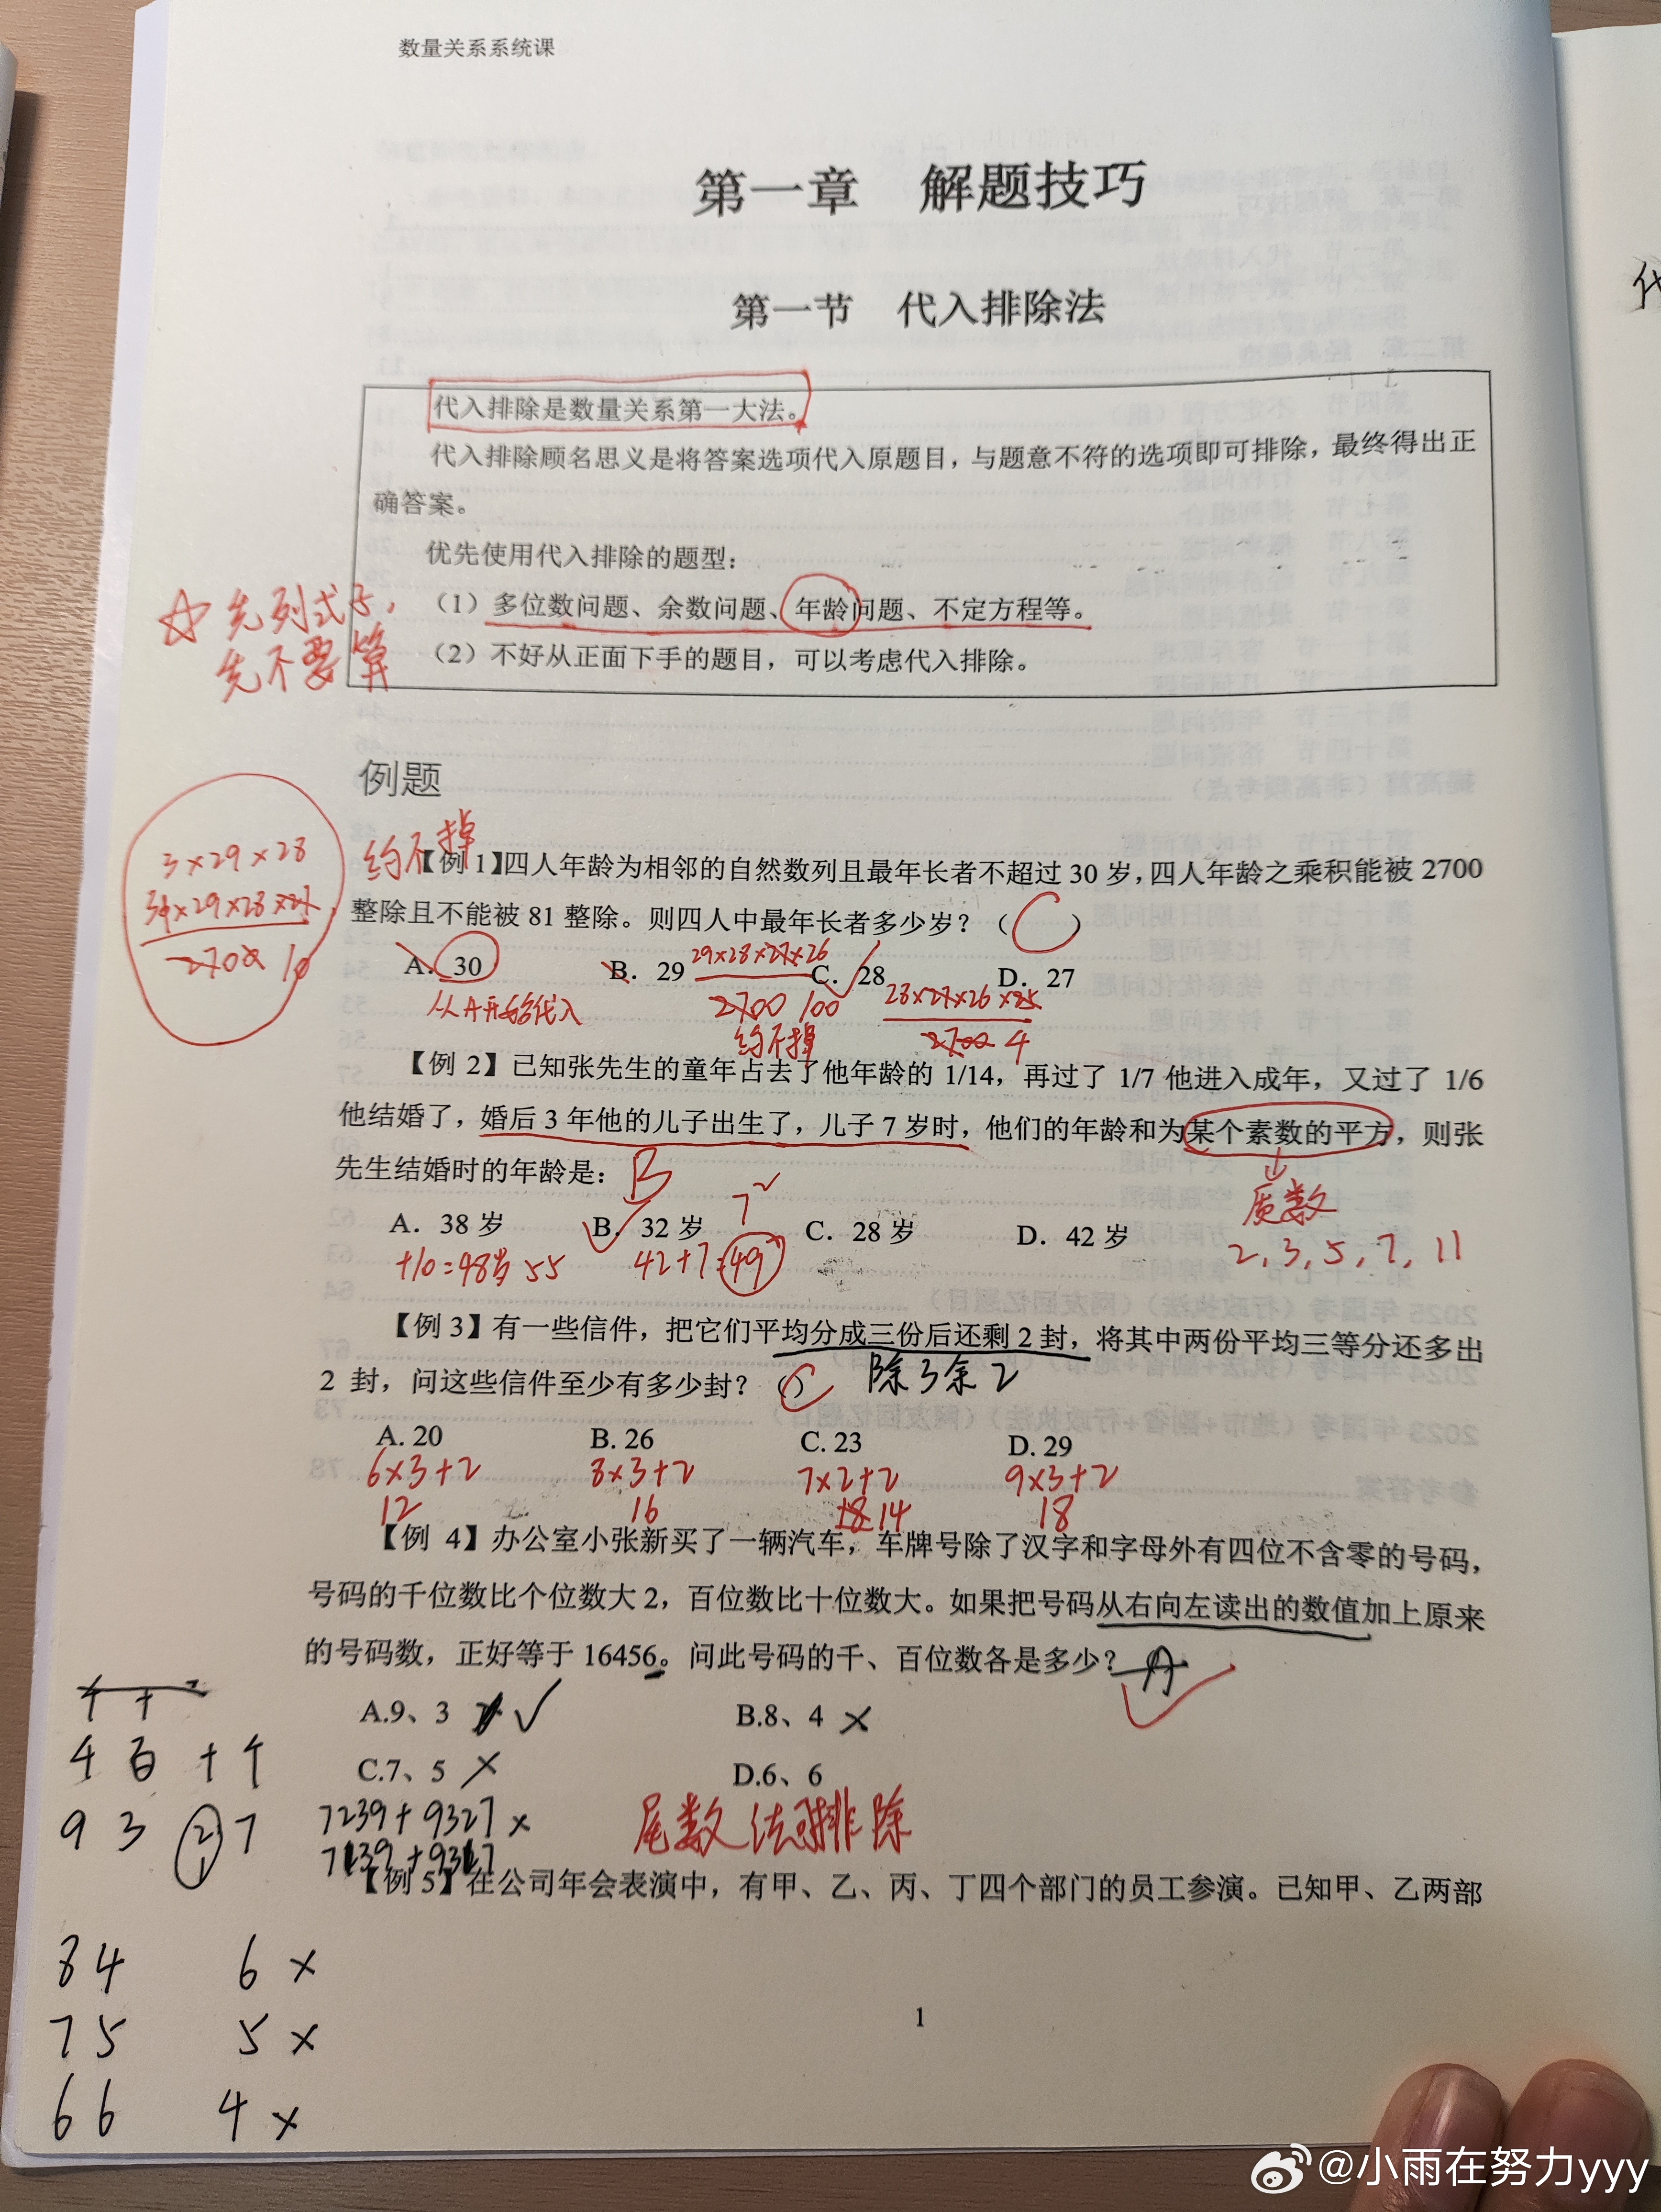 数量关系系统课
第一章 解题技巧
第一节 代入排除法
代入排除是数量关系第一大法。
代入排除顾名思义是将答案选项代入原题目，与题意不符的选项即可排除，最终得出正
确答案。
优先使用代入排除的题型：
（1）多位数问题、余数问题、年龄问题、不定方程等。
（2）不好从正面下手的题目，可以考虑代入排除。
☆ 先列式子，
先不要算
例题
约不掉
3×29×28
2700 10
【例 1】四人年龄为相邻的自然数列且最年长者不超过 30 岁，四人年龄之乘积能被 2700
整除且不能被 81 整除。则四人中最年长者多少岁？（C）
A. 30 B. 29 C. 28 D. 27
从A开始代入
29×28×27×26
2700 100
约不掉
28×27×26×25
2700 4
【例 2】已知张先生的童年占去了他年龄的 1/14，再过了 1/7 他进入成年，又过了 1/6
他结婚了，婚后 3 年他的儿子出生了，儿子 7 岁时，他们的年龄和为某个素数的平方，则张
先生结婚时的年龄是： B
质数
2,3,5,7,11
7²
A. 38 岁 B. 32 岁 C. 28 岁 D. 42 岁
+10=48岁 55 42+7=49
【例 3】有一些信件，把它们平均分成三份后还剩 2 封，将其中两份平均三等分还多出
2 封，问这些信件至少有多少封？ C 除3余2
A. 20 B. 26 C. 23 D. 29
6×3+2 8×3+2 7×2+2 9×3+2
12 16 18 14 18
【例 4】办公室小张新买了一辆汽车，车牌号除了汉字和字母外有四位不含零的号码，
号码的千位数比个位数大 2，百位数比十位数大。如果把号码从右向左读出的数值加上原来
的号码数，正好等于 16456。问此号码的千、百位数各是多少？ A
A.9、3 ✓ B.8、4 ×
C.7、5 × D.6、6
千 百 十 个
9 3 2 7
7239+9327 ×
7139+9317
尾数法可排除
【例 5】在公司年会表演中，有甲、乙、丙、丁四个部门的员工参演。已知甲、乙两部
84 6 ×
75 5 ×
66 4 ×
1
@小雨在努力yyy